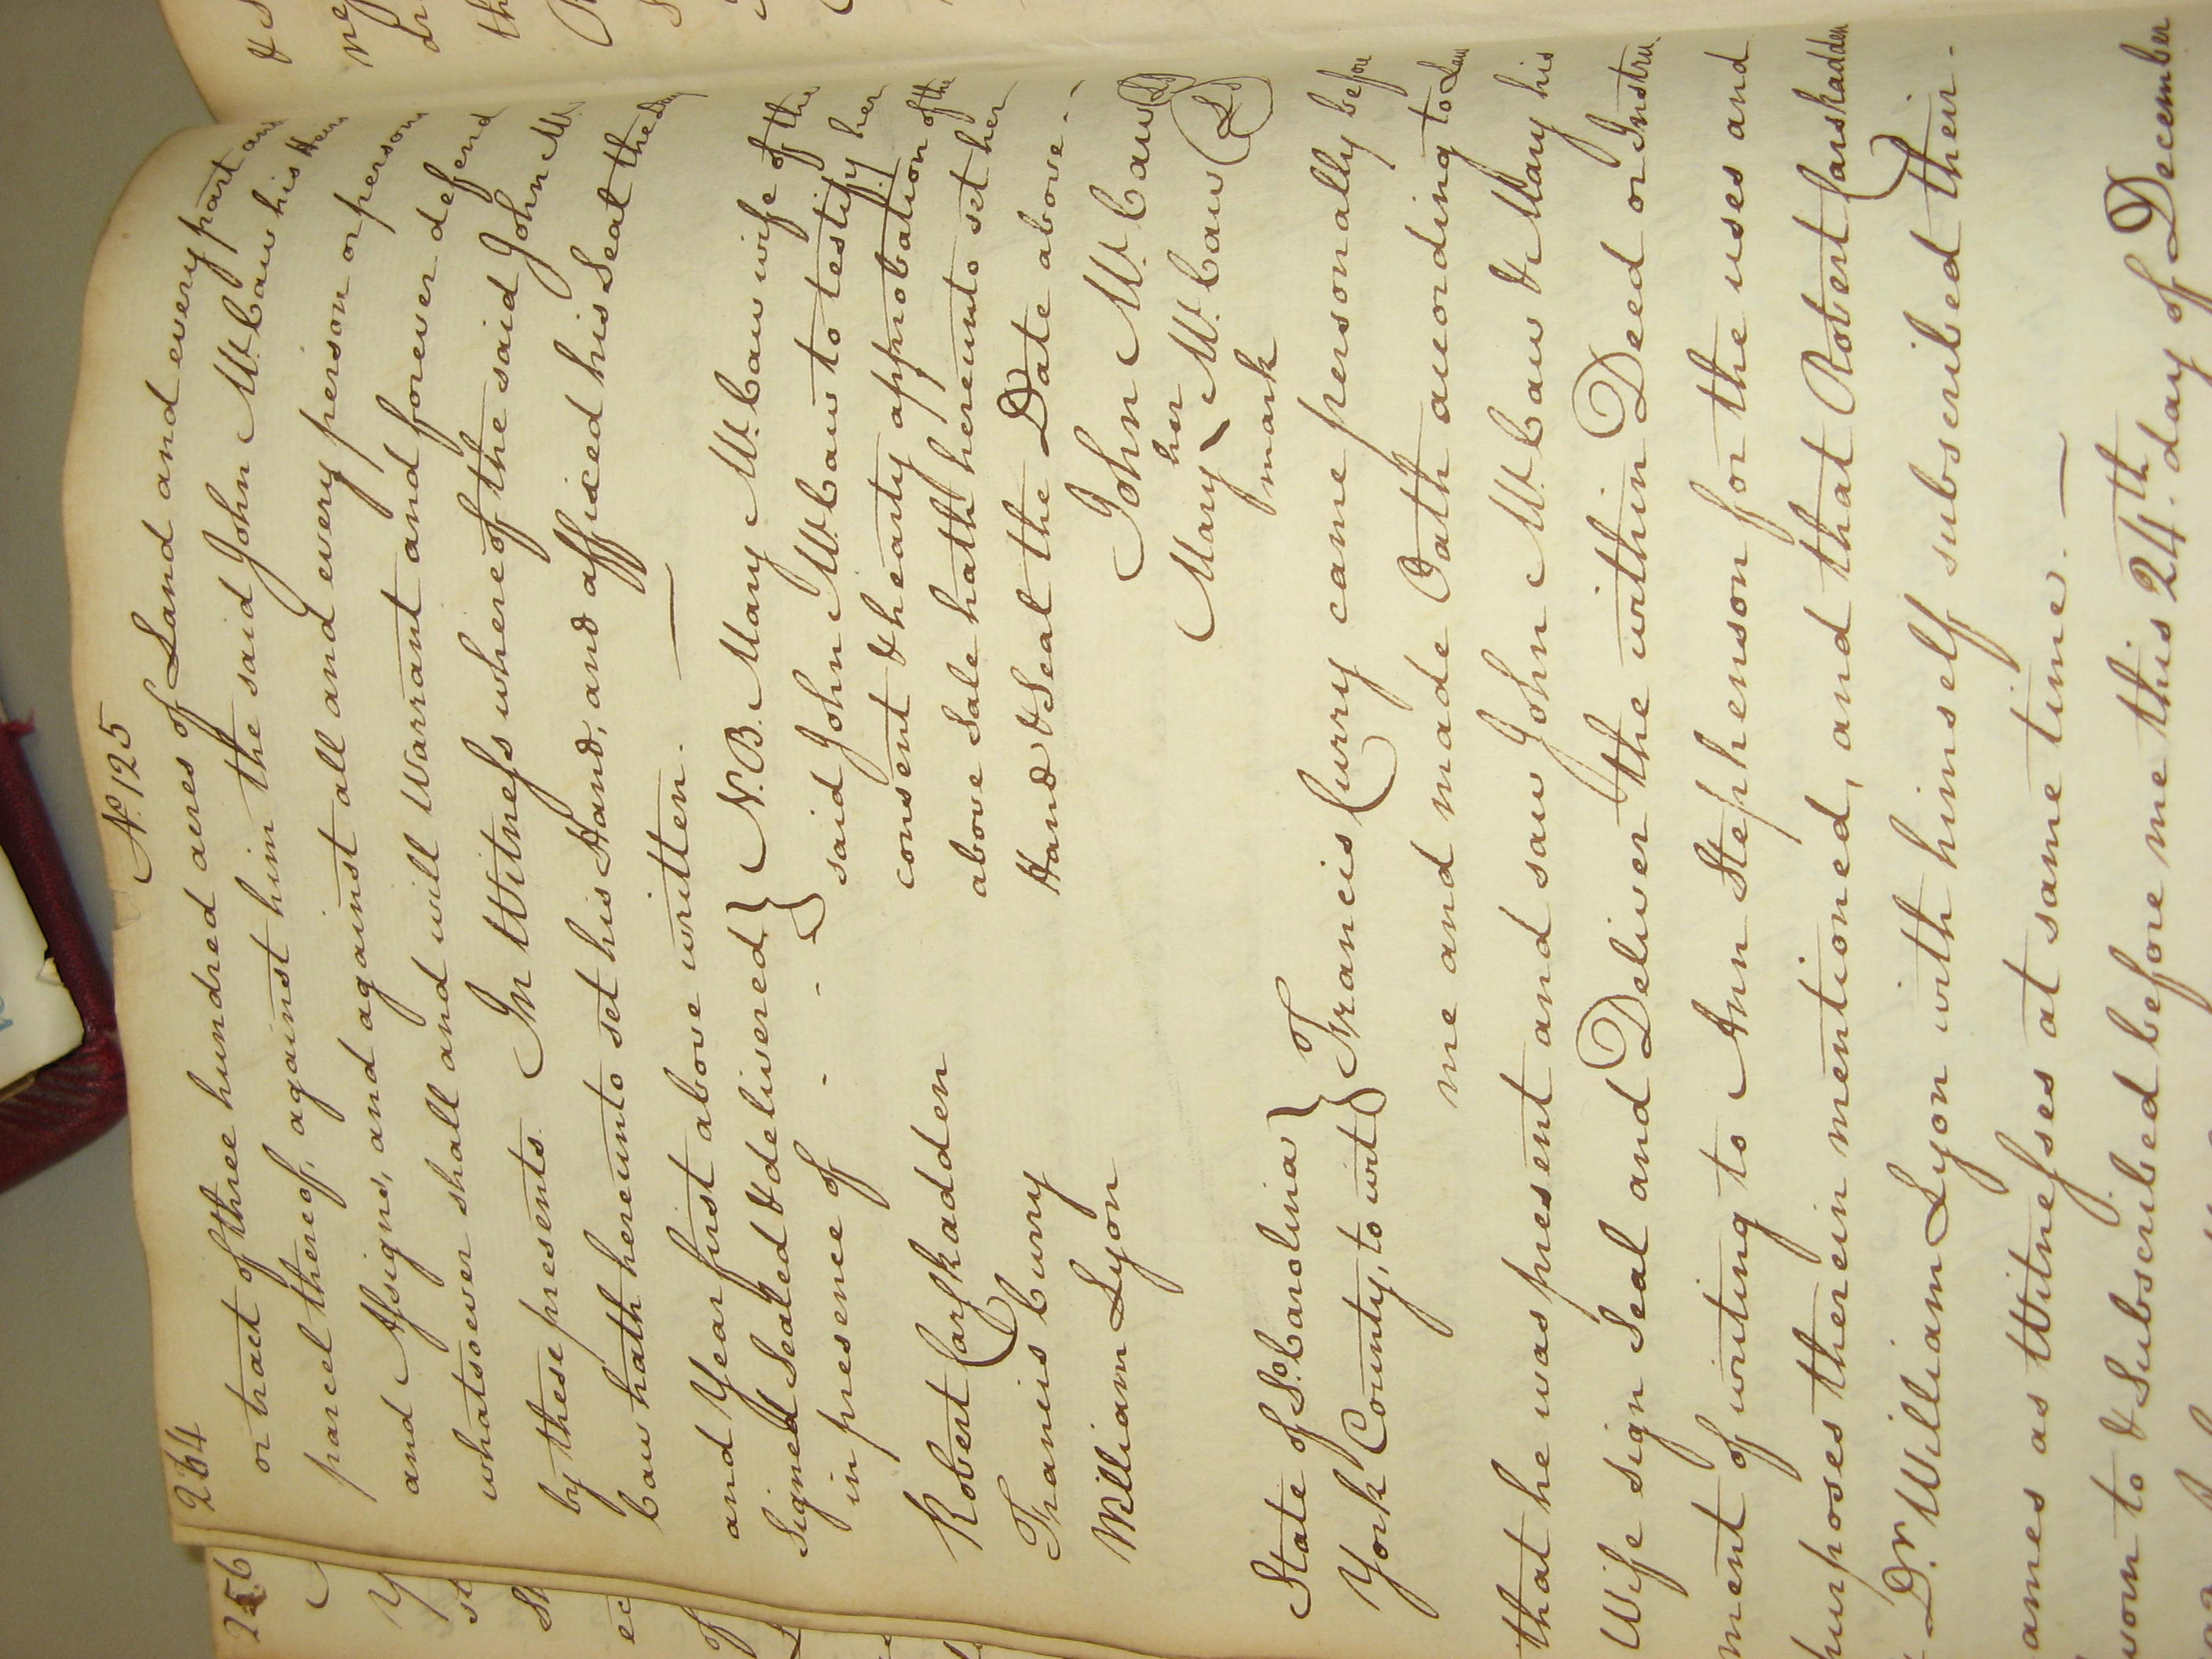 264 No. 125
or tract of three hundred acres of Land and every part and
parcel thereof, against him the said John McCaw his Heirs
and Assigns, and against all and every person or persons
whatsoever shall and will Warrant and forever defend
by these presents. In Witness whereof the said John Mc.
Caw hath hereunto set his Hand, and affixed his Seal the Day
and Year first above written.
Signed Sealed & delivered } N.B. Mary McCaw wife of the
in presence of - - - said John McCaw to testify her
consent & hearty approbation of the
Robert Carskadden above Sale hath hereunto set her
Francis Curry Hand & Seal the Date above -
William Lyon John McCaw (LS)
her
Mary \ McCaw (LS)
mark
State of So. Carolina }
York County, to wit } Francis Curry came personally before
me and made Oath according to Law
that he was present and saw John McCaw & Mary his
Wife sign Seal and Deliver the within Deed or Instru
ment of writing to Ann Stephenson for the uses and
purposes therein mentioned, and that Robert Carskadden
Dr. William Lyon with himself subscribed their -
ames as Witnesses at same time. —
worn to & Subscribed before me this 24th. day of December
256